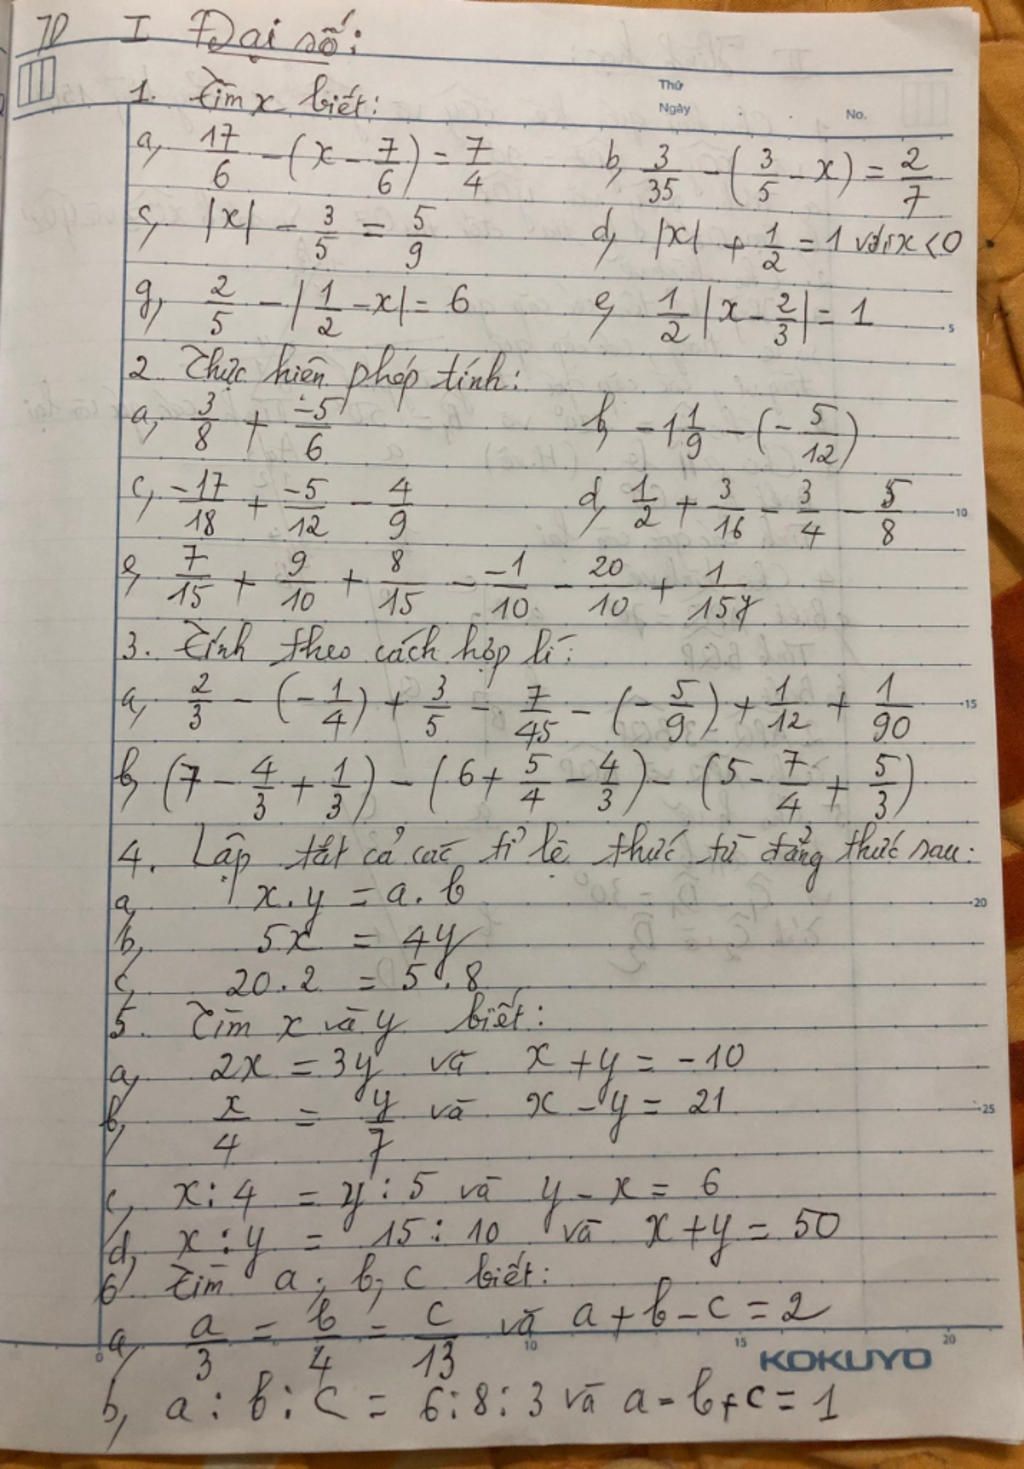 7D I Đại số:
Thứ
Ngày
No.
1. Tìm x biết:
a, 17/6 - (x - 7/6) = 7/4 b, 3/35 - (3/5 - x) = 2/7
c, |x| - 3/5 = 5/9 d, |x| + 1/2 = 1 với x < 0
g, 2/5 - |1/2 - x| = 6 e, 1/2 |x - 2/3| = 1
5
2 Thực hiên phép tính:
a, 3/8 + -5/6 b, -1 1/9 - (-5/12)
c, -17/18 + -5/12 - 4/9 d, 1/2 + 3/16 - 3/4 - 5/8
10
e, 7/15 + 9/10 + 8/15 - -1/10 - 20/10 + 1/157
3. Tính theo cách hợp lí:
a, 2/3 - (-1/4) + 3/5 - 7/45 - (-5/9) + 1/12 + 1/90
15
b, (7 - 4/3 + 1/3) - (6 + 5/4 - 4/3) - (5 - 7/4 + 5/3)
4. Lập tất cả các tỉ lệ thức từ đẳng thức sau:
a, x.y = a.b
20
b, 5x = 4y
c, 20.2 = 5.8
5. Tìm x và y biết:
a, 2x = 3y và x + y = -10
b, x/4 = y/7 và x - y = 21
25
c, x : 4 = y : 5 và y - x = 6
d, x : y = 15 : 10 và x + y = 50
6 Tìm a, b, c biết:
a, a/3 = b/4 = c/13 và a + b - c = 2
0 10 15 20
KOKUYO
b, a : b : c = 6 : 8 : 3 và a - b + c = 1